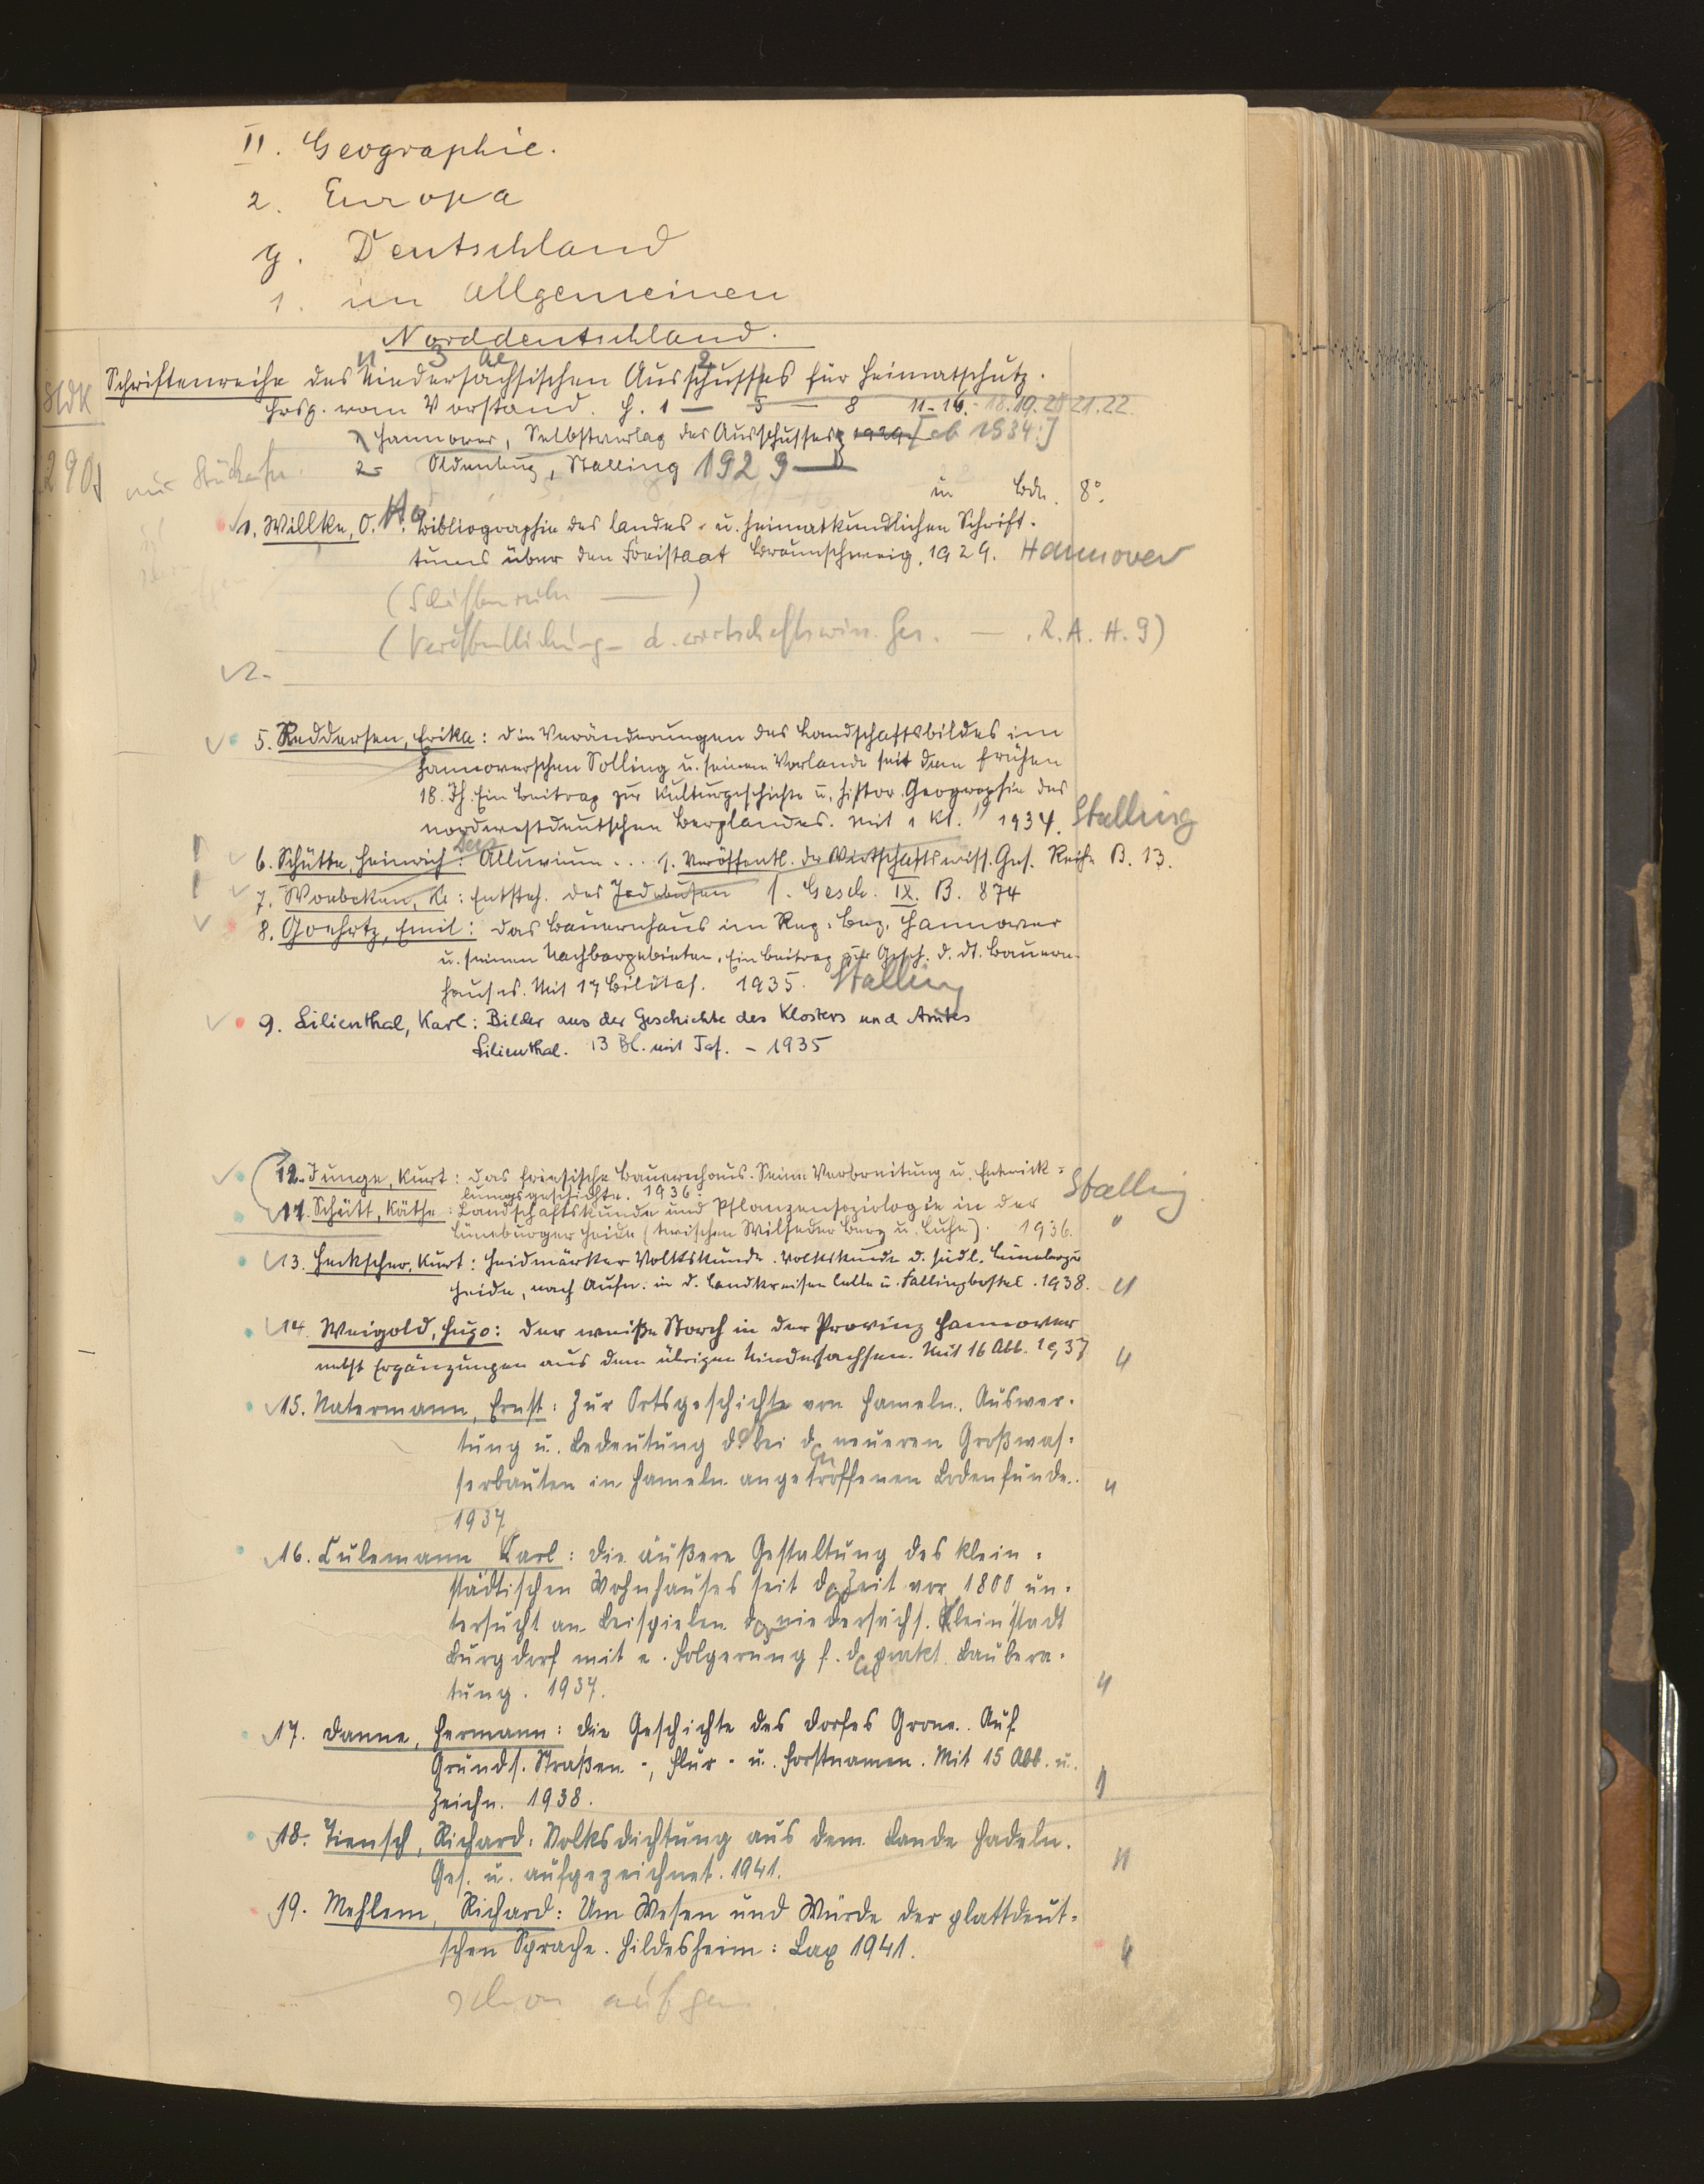 II. Geographie.
2. Europa
g. Deutschland
1. im Allgemeinen
Norddeutschland.
Schriftenreihe des Niedersächsischen Ausschusses für Heimatschutz.
Hrsg. vom Vorstand. H. 1 — 5 — 8 11-16. - 18.19.20 21.22.
Hannover, Selbstverlag des Ausschusses 1929 [ab 1934:]
2- Oldenburg, Stalling 1929—
290
in Bdn. 8°.
1. Willke, O. Bibliographie des landes- u. heimatkundlichen Schrift-
tums über den Freistaat Braunschweig. 1929. Hannover
(Schriftenreihe — )
(Veröffentlichung d. wirtschaftswiss. Ges. — . R. A. H. 9)
2.
5. Reddersen, Erika: Die Veränderungen des Landschaftsbildes im
hannoverschen Solling u. seinem Vorlande seit dem frühen
18. Jh. Ein Beitrag zur Kulturgeschichte u. histor. Geographie des
nordwestdeutschen Berglandes. Mit 1 Kt. 1934. Stalling
6. Schütte, Heinrich: Das Alluvium ... s. Veröffentl. der Wirtschaftswiss. Ges. Reihe B. 13.
7. Woebcken, C.: Entsteh. des Jadebusen s. Gesch. IX. B. 874
8. Goehrtz, Emil: Das Bauernhaus im Reg. Bez. Hannover
u. seinen Nachbargebieten. Ein Beitrag zur Gesch. d. dt. Bauern-
hauses. Mit 17 Bildtaf. 1935. Stalling
9. Lilienthal, Karl: Bilder aus der Geschichte des Klosters und Amtes
Lilienthal. 13 Bl. mit Taf. - 1935
12. Junge, Kurt: Das friesische Bauernhaus. Seine Verbreitung u. Entwick-
lungsgeschichte. 1936. Stalling
11. Schütt, Käthe: Landschaftskunde und Pflanzensoziologie in der
Lüneburger Heide (zwischen Wilseder Berg u. Luhe). 1936. "
13. Heckscher, Kurt: Heidmärker Volkskunde. Volkskunde d. südl. Lüneburger
Heide, nach Aufn. in d. Landkreisen Celle u. Fallingbostel. 1938. "
14. Weigold, Hugo: Der weiße Storch in der Provinz Hannover
nebst Ergänzungen aus dem übrigen Niedersachsen. Mit 16 Abb. 1937 "
15. Natermann, Ernst: Zur Ortsgeschichte von Hameln. Auswer-
tung u. Bedeutung d. bei den neueren Großwas-
serbauten in Hameln angetroffenen Bodenfunde. "
1937
16. Culemann Carl: Die äußere Gestaltung des klein-
städtischen Wohnhauses seit der Zeit vor 1800 un-
tersucht an Beispielen der niedersächs. Kleinstadt
Burgdorf mit e. Folgerung f. die prakt. Baubera-
tung. 1937. "
17. Danne, Hermann: Die Geschichte des Dorfes Grone. Auf
Grund s. Straßen-, Flur- u. Forstnamen. Mit 15 Abb. u.
Zeichn. 1938. "
18. Tiensch, Richard: Volksdichtung aus dem Lande Hadeln.
Ges. u. aufgezeichnet. 1941. "
19. Mehlem, Richard: Um Wesen und Würde der plattdeut-
schen Sprache. Hildesheim: Lax 1941. "
schon aufgen.